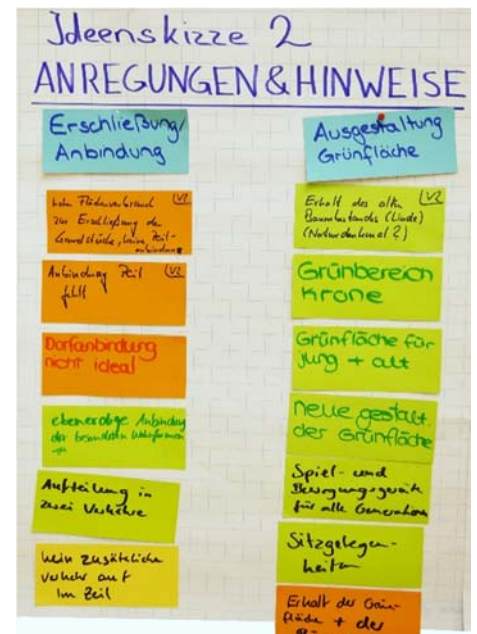 Ideenskizze 2
ANREGUNGEN & HINWEISE
Erschließung/
Anbindung
hoher Flächenverbrauch V2
zur Erschließung der
Grundstücke, keine Zeil-
anbindung
Anbindung Zeil V2
fehlt
Dorfanbindung
nicht ideal
ebenerdige Anbindung
der besonderen Wohnformen
Aufteilung in
zwei Verkehre
kein zusätzlicher
Verkehr auf
Im Zeil
Ausgestaltung
Grünfläche
Erhalt des alten V2
Baumbestandes (Linde)
(Naturdenkmal?)
Grünbereich
Krone
Grünfläche für
jung + alt
neue gestalt.
der Grünfläche
Spiel- und
Bewegungsgeräte
für alle Generationen
Sitzgelegen-
heiten
Erhalt der Grün-
fläche + der